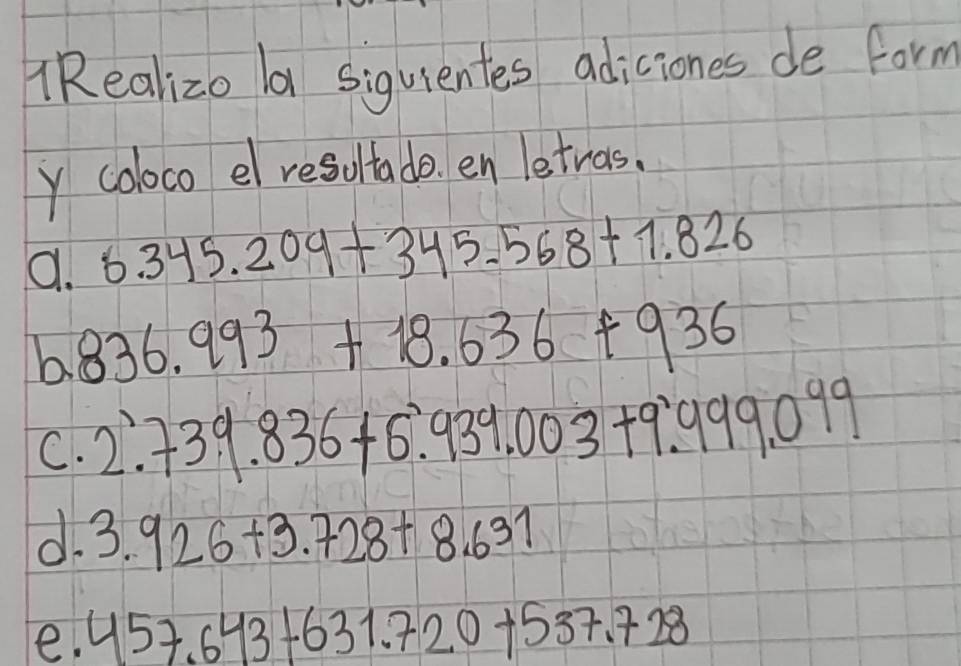 1Realizo la siguientes adiciones de form
y coloco el resultado. en letras.
a. 6.345.209 + 345.568 + 1.826
b. 836.993 + 18.636 + 936
c. 2'.739.836 + 6'.939.003 + 9'.999.099
d. 3.926 + 3.728 + 8.631
e. 457.643 + 631.720 + 537.728